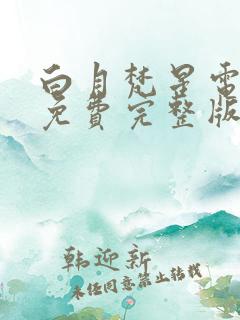 白月梵星電
免費完整版
韩迎新
未经同意禁止转载